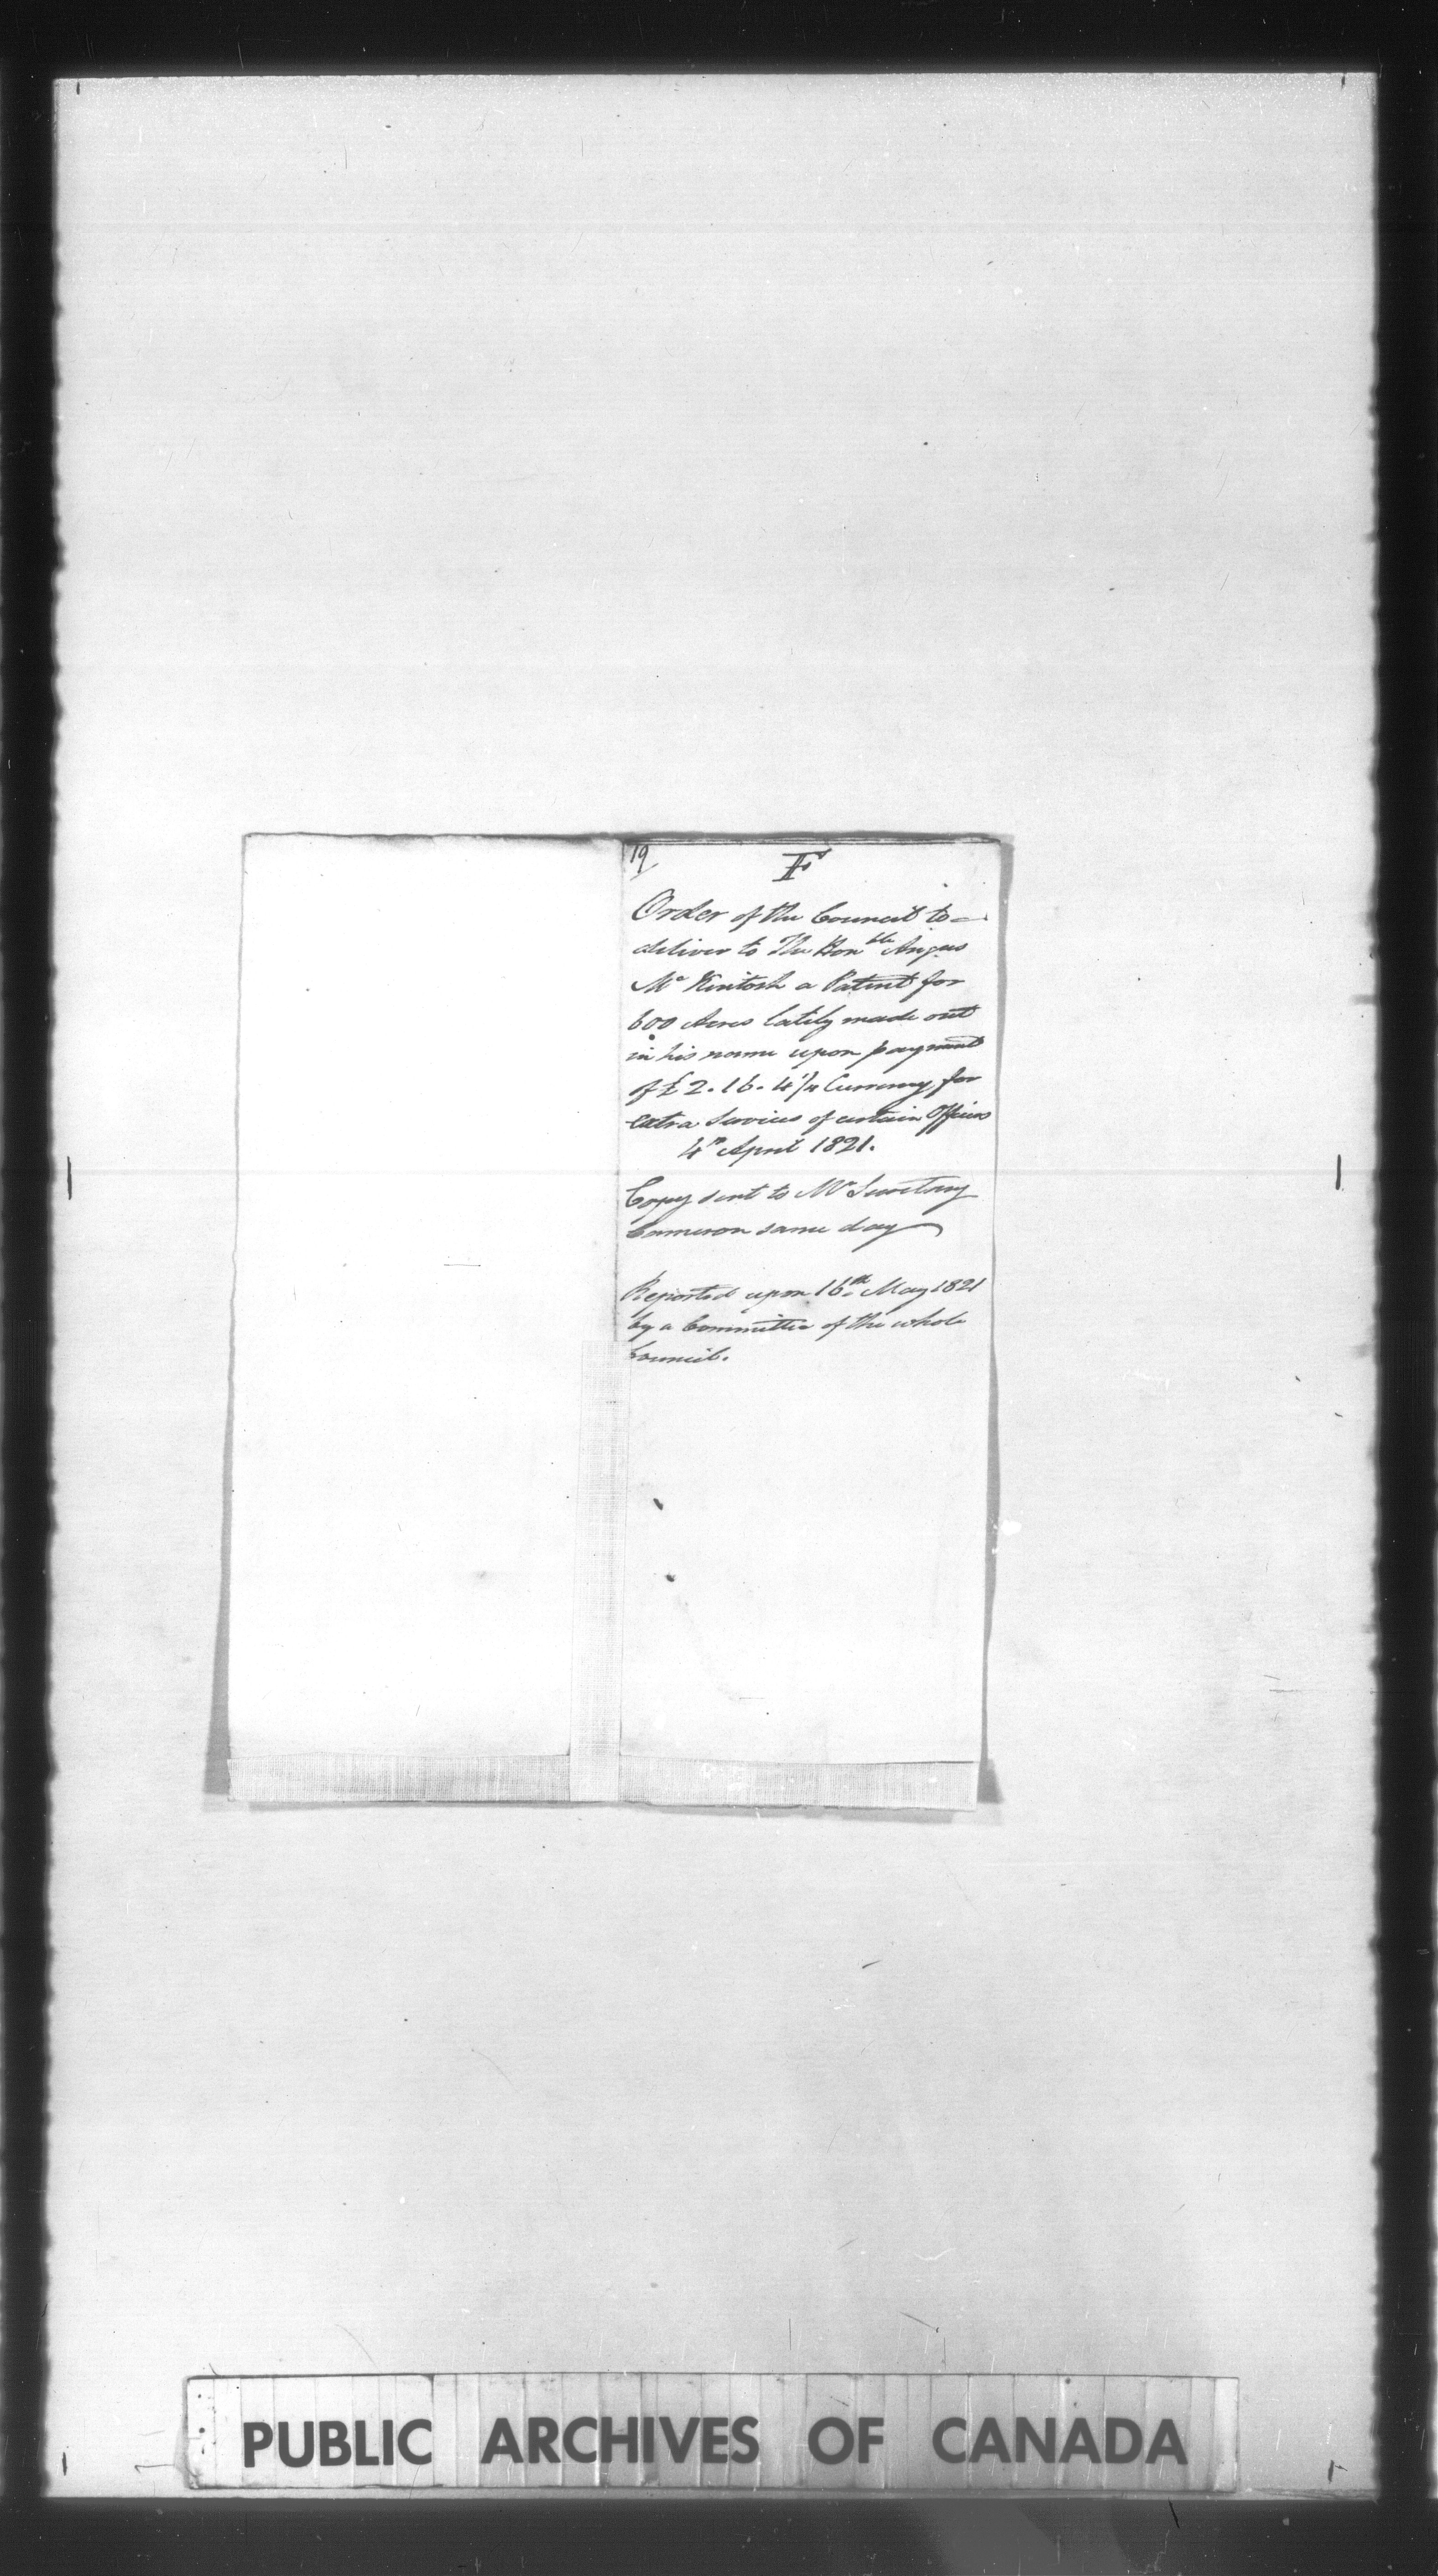 19
F
Order of the Council to
deliver to The Honble Angus
Mc Kintosh a Patent for
600 Acres lately made out
in his name upon payment
of £2.16.4 1/4 Currency, for
extra Services of certain Offices
4th April 1821.
Copy sent to Mr Secretary
Cameron same day
Reported upon 16th May 1821
by a Committee of the whole
Council.
PUBLIC ARCHIVES OF CANADA